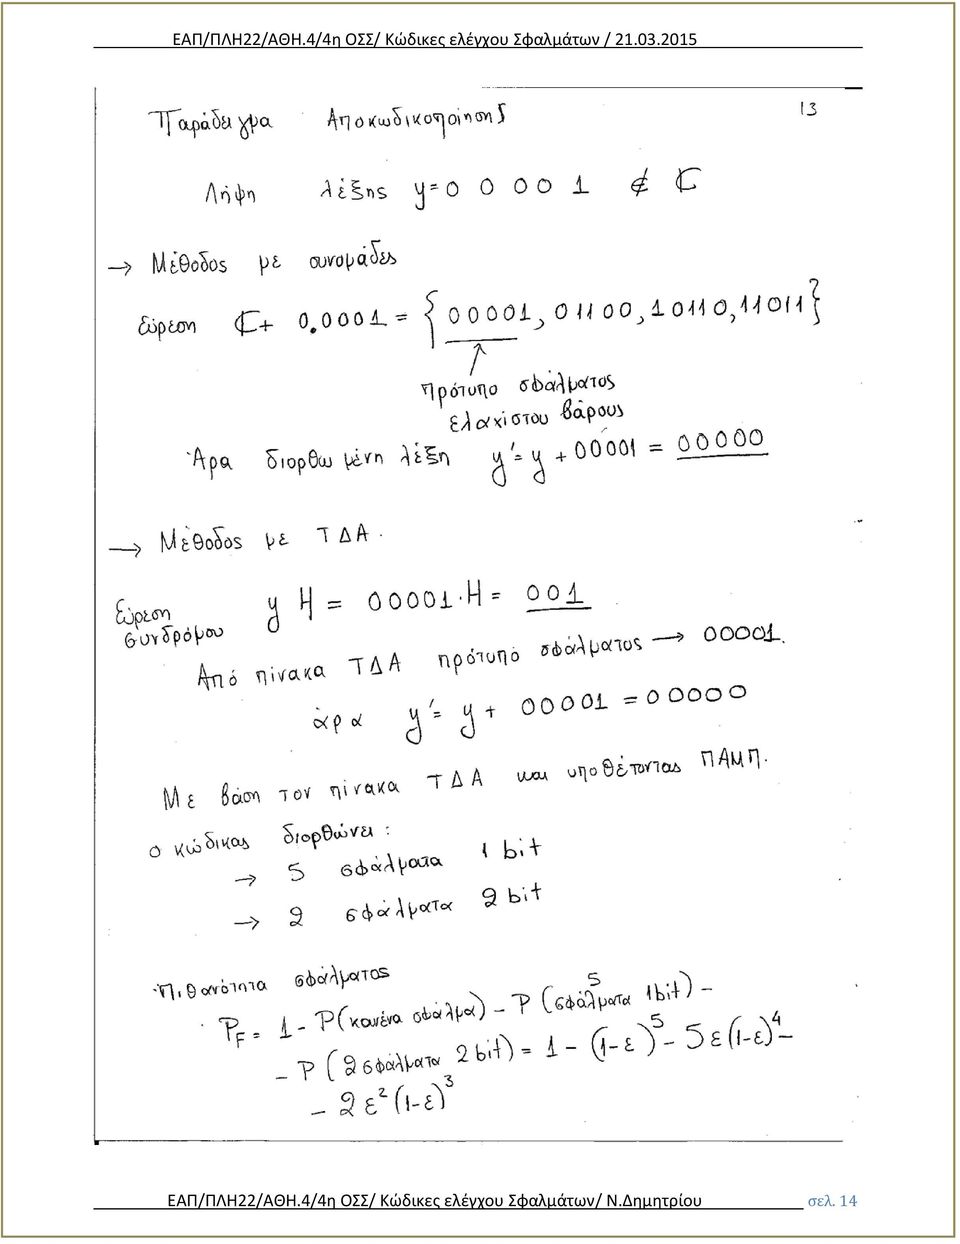 ΕΑΠ/ΠΛΗ22/ΑΘΗ.4/4η ΟΣΣ/ Κώδικες ελέγχου Σφαλμάτων / 21.03.2015
13
Παράδειγμα Αποκωδικοποίησης
Λήψη λέξης y=0 0 0 0 1 ∉ C
→ Μέθοδος με συνομάδες
Εύρεση C+ 0.0001 = {00001, 01100, 10110, 11011}
πρότυπο σφάλματος
ελαχίστου βάρους
Άρα διορθωμένη λέξη y'= y + 00001 = 00000
→ Μέθοδος με ΤΔΑ.
Εύρεση y H = 00001·H = 001
συνδρόμου
Από πίνακα ΤΔΑ πρότυπο σφάλματος → 00001.
άρα y'= y + 00001 = 00000
Με βάση τον πίνακα ΤΔΑ και υποθέτοντας ΠΑΜΠ.
ο κώδικας διορθώνει :
→ 5 σφάλματα 1 bit
→ 2 σφάλματα 2 bit
Πιθανότητα σφάλματος
P_F = 1 - P(κανένα σφάλμα) - P (5 σφάλματα 1bit) -
- P (2 σφάλματα 2 bit) = 1 - (1-ε)^5 - 5ε(1-ε)^4 -
- 2ε^2(1-ε)^3
ΕΑΠ/ΠΛΗ22/ΑΘΗ.4/4η ΟΣΣ/ Κώδικες ελέγχου Σφαλμάτων/ Ν.Δημητρίου σελ. 14